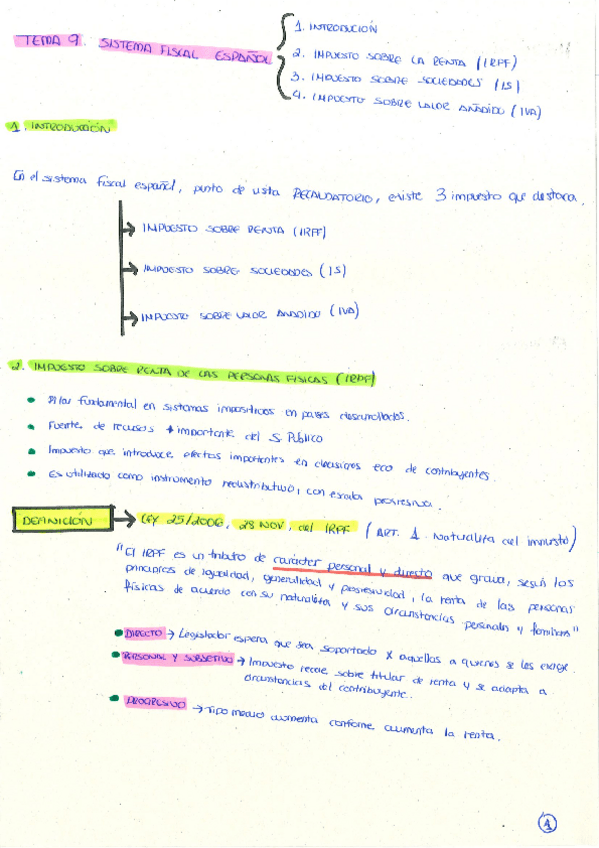 TEMA 9. SISTEMA FISCAL ESPAÑOL
1. INTRODUCIÓN
2. IMPUESTO SOBRE LA RENTA (IRPF)
3. IMPUESTO SOBRE SOCIEDADES (IS)
4. IMPUESTO SOBRE VALOR AÑADIDO (IVA)
1. INTRODUCCIÓN
En el sistema fiscal español, punto de vista RECAUDATORIO, existe 3 impuesto que destaca.
→ IMPUESTO SOBRE RENTA (IRPF)
→ IMPUESTO SOBRE SOCIEDADES (IS)
→ IMPUESTO SOBRE VALOR AÑADIDO (IVA)
2. IMPUESTO SOBRE RENTA DE LAS PERSONAS FÍSICAS (IRPF)
• Pilar fundamental en sistemas impositivos en países desarrollados.
• Fuente de recursos + importante del S. Público
• Impuesto que introduce efectos importantes en decisiones eco de contribuyentes.
• Es utilizado como instrumento redistributivo, con escala progresiva.
DEFINICIÓN → LEY 25/2006, 28 NOV, del IRPF (ART. 1. Naturaliza del impuesto)
"El IRPF es un tributo de carácter personal y directo que grava, según los
principios de igualdad, generalidad y progresividad, la renta de las personas
físicas de acuerdo con su naturaleza y sus circunstancias personales y familiares"
• DIRECTO → Legislador espera que sea soportado x aquellos a quienes se les exige.
• PERSONAL Y SUBJETIVO → Impuesto recae sobre titular de renta y se adapta a
circunstancias del contribuyente.
• PROGRESIVO → Tipo medio aumenta conforme aumenta la renta.